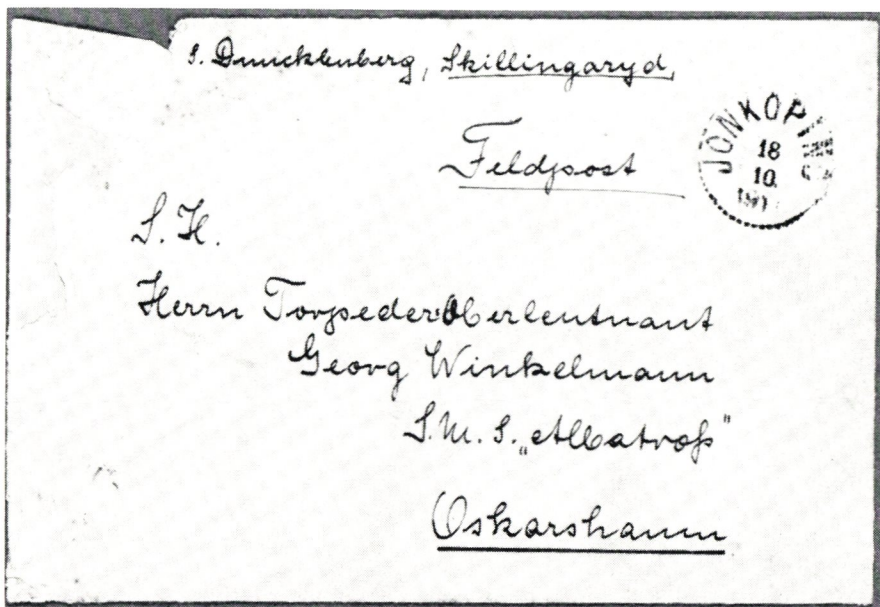 Skillingaryd,
Feldpost
JÖNKÖPING
18
10.
S. H.
Herrn TorpederOberleutnant
Georg Winkelmann
S. M. S. „Albatroß"
Oskarshamn